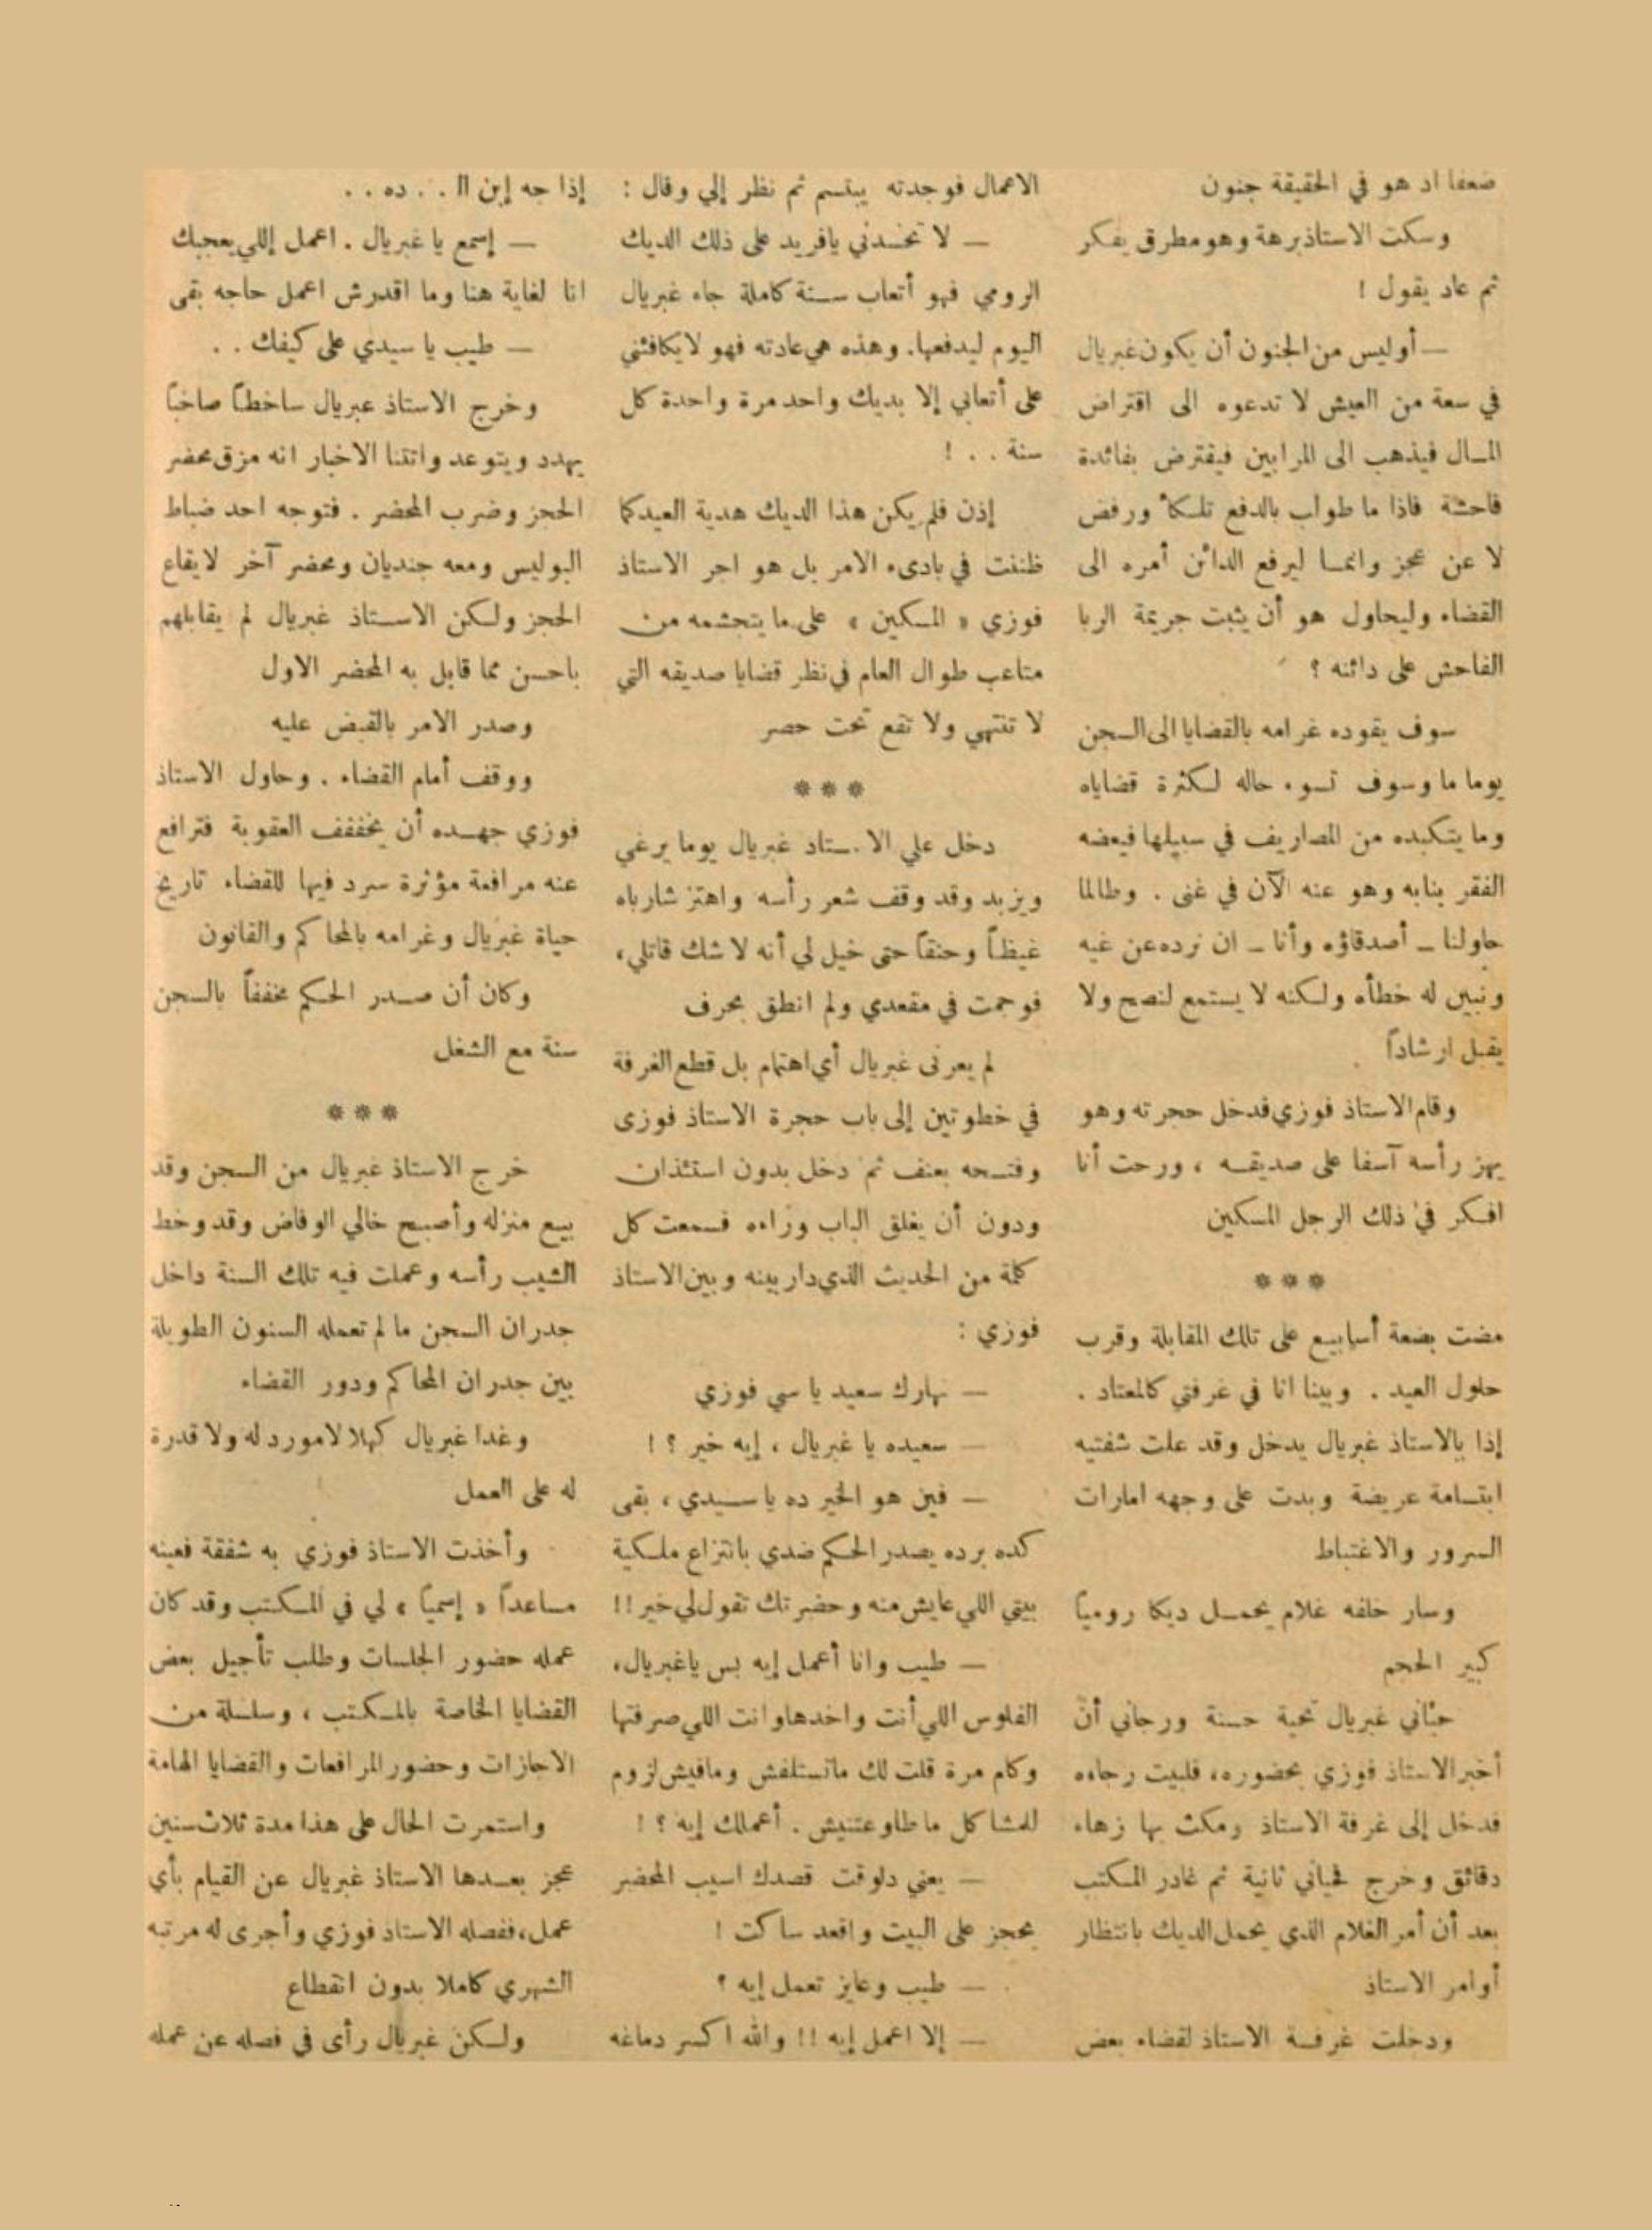 ضعفا اد هو في الحقيقة جنون
وسكت الاستاذ برهة وهو مطرق يفكر
ثم عاد يقول !
— أوليس من الجنون أن يكون غبريال
في سعة من العيش لا تدعوه الى اقتراض
المال فيذهب الى المرابين فيقترض بفائدة
فاحشة فاذا ما طولب بالدفع تلكأ ورفض
لا عن عجز وانما ليرفع الدائن أمره الى
القضاء وليحاول هو أن يثبت جريمة الربا
الفاحش على دائنه ؟
سوف يقوده غرامه بالقضايا الى السجن
يوما ما وسوف تسوء حاله لكثرة قضاياه
وما يتكبده من المصاريف في سبيلها فيعضه
الفقر بنابه وهو عنه الآن في غنى . وطالما
حاولنا — أصدقاؤه وأنا — ان نرده عن غيه
ونبين له خطأه ولكنه لا يستمع لنصح ولا
يقبل ارشاداً
وقام الاستاذ فوزي فدخل حجرته وهو
يهز رأسه آسفا على صديقه ، ورحت أنا
افكر في ذلك الرجل المسكين
***
مضت بضعة أسابيع على تلك المقابلة وقرب
حلول العيد . وبينا انا في غرفتي كالمعتاد .
إذا بالاستاذ غبريال يدخل وقد علت شفتيه
ابتسامة عريضة وبدت على وجهه امارات
السرور والاغتباط
وسار خلفه غلام يحمل ديكا رومياً
كبير الحجم
حيّاني غبريال تحية حسنة ورجاني أن
أخبر الاستاذ فوزي بحضوره، فلبيت رجاءه
فدخل إلى غرفة الاستاذ ومكث بها زهاء
دقائق وخرج فحياني ثانية ثم غادر المكتب
بعد أن أمر الغلام الذي يحمل الديك بانتظار
أوامر الاستاذ
ودخلت غرفة الاستاذ لقضاء بعض
الاعمال فوجدته يبتسم ثم نظر إلي وقال :
— لا تحسدني يا فريد على ذلك الديك
الرومي فهو أتعاب سنة كاملة جاء غبريال
اليوم ليدفعها. وهذه هي عادته فهو لا يكافئني
على أتعابي إلا بديك واحد مرة واحدة كل
سنة . . !
إذن فلم يكن هذا الديك هدية العيد كما
ظننت في بادىء الامر بل هو اجر الاستاذ
فوزي « المسكين » على ما يتجشمه من
متاعب طوال العام في نظر قضايا صديقه التي
لا تنتهي ولا تقع تحت حصر
***
دخل علي الاستاذ غبريال يوما يرغي
ويزبد وقد وقف شعر رأسه واهتز شارباه
غيظاً وحنقاً حتى خيل لي أنه لا شك قاتلي،
فوجمت في مقعدي ولم انطق بحرف
لم يعرني غبريال أي اهتمام بل قطع الغرفة
في خطوتين إلى باب حجرة الاستاذ فوزى
وفتحه بعنف ثم دخل بدون استئذان
ودون أن يغلق الباب وراءه فسمعت كل
كلمة من الحديث الذي دار بينه وبين الاستاذ
فوزي :
— نهارك سعيد يا سي فوزي
— سعيده يا غبريال ، إيه خير ؟ !
— فين هو الخير ده يا سيدي ، بقى
كده برده يصدر الحكم ضدي بانتزاع ملكية
بيتي اللي عايش منه وحضرتك تقول لي خير !!
— طيب وانا أعمل إيه بس يا غبريال،
الفلوس اللي أنت واخدها وانت اللي صرفتها
وكام مرة قلت لك ماتستلفش ومافيش لزوم
للمشاكل ماطاوعتنيش . أعملك إيه ؟ !
— يعني دلوقت قصدك اسيب المحضر
يحجز على البيت واقعد ساكت !
— طيب وعايز تعمل إيه ؟
— إلا اعمل إيه !! والله اكسر دماغه
إذا جه إبن ال . . ده . .
— إسمع يا غبريال . اعمل إللي يعجبك
انا لغاية هنا وما اقدرش اعمل حاجه بقى
— طيب يا سيدي على كيفك . .
وخرج الاستاذ غبريال ساخطاً صاخباً
يهدد ويتوعد واتتنا الاخبار انه مزق محضر
الحجز وضرب المحضر . فتوجه احد ضباط
البوليس ومعه جنديان ومحضر آخر لايقاع
الحجز ولكن الاستاذ غبريال لم يقابلهم
باحسن مما قابل به المحضر الاول
وصدر الامر بالقبض عليه
ووقف أمام القضاء . وحاول الاستاذ
فوزي جهده أن يخففف العقوبة فترافع
عنه مرافعة مؤثرة سرد فيها للقضاء تاريخ
حياة غبريال وغرامه بالمحاكم والقانون
وكان أن صدر الحكم مخففاً بالسجن
سنة مع الشغل
***
خرج الاستاذ غبريال من السجن وقد
بيع منزله وأصبح خالي الوفاض وقد وخط
الشيب رأسه وعملت فيه تلك السنة داخل
جدران السجن ما لم تعمله السنون الطويلة
بين جدران المحاكم ودور القضاء
وغدا غبريال كهلا لا مورد له ولا قدرة
له على العمل
وأخذت الاستاذ فوزي به شفقة فعينه
مساعداً « إسمياً » لي في المكتب وقد كان
عمله حضور الجلسات وطلب تأجيل بعض
القضايا الخاصة بالمكتب ، وسلسلة من
الاجازات وحضور المرافعات والقضايا الهامة
واستمرت الحال على هذا مدة ثلاث سنين
عجز بعدها الاستاذ غبريال عن القيام بأي
عمل، ففصله الاستاذ فوزي وأجرى له مرتبه
الشهري كاملا بدون انقطاع
ولكن غبريال رأى في فصله عن عمله